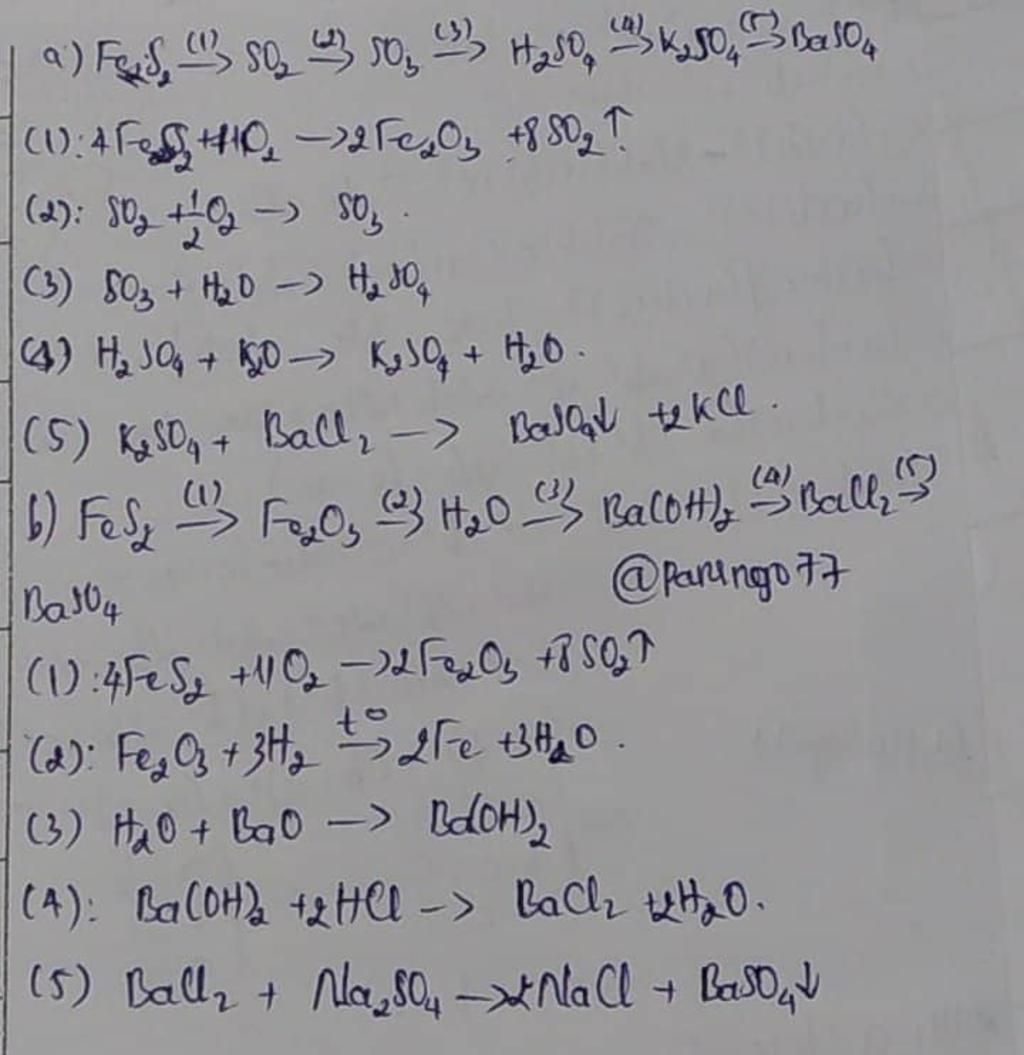 a) FeS₂ (1)→ SO₂ (2)→ SO₃ (3)→ H₂SO₄ (4)→ K₂SO₄ (5)→ BaSO₄
(1): 4FeS₂ + 11O₂ → 2Fe₂O₃ + 8SO₂↑
(2): SO₂ + 1/2 O₂ → SO₃.
(3) SO₃ + H₂O → H₂SO₄
(4) H₂SO₄ + K₂O → K₂SO₄ + H₂O.
(5) K₂SO₄ + BaCl₂ → BaSO₄↓ + 2KCl.
b) FeS₂ (1)→ Fe₂O₃ (2)→ H₂O (3)→ Ba(OH)₂ (4)→ BaCl₂ (5)→
@parungo77
BaSO₄
(1): 4FeS₂ + 11O₂ → 2Fe₂O₃ + 8SO₂↑
(2): Fe₂O₃ + 3H₂ t°→ 2Fe + 3H₂O.
(3) H₂O + BaO → Ba(OH)₂
(4): Ba(OH)₂ + 2HCl → BaCl₂ + 2H₂O.
(5) BaCl₂ + Na₂SO₄ → 2NaCl + BaSO₄↓